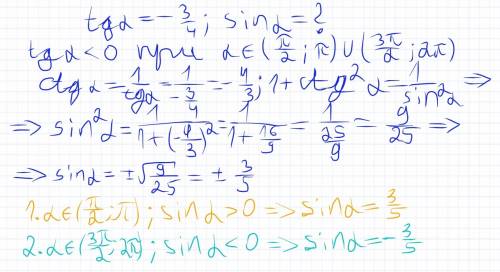 tgα = -3/4 ; sinα = ?
tgα < 0 при α ∈ (π/2 ; π) ∪ (3π/2 ; 2π)
ctgα = 1/tgα = 1/(-3/4) = -4/3 ; 1 + ctg²α = 1/sin²α =>
=> sin²α = 1/(1+(-4/3)²) = 1/(1+16/9) = 1/(25/9) = 9/25 =>
=> sinα = ±√(9/25) = ± 3/5
1. α ∈ (π/2 ; π) ; sinα > 0 => sinα = 3/5
2. α ∈ (3π/2 ; 2π) ; sinα < 0 => sinα = -3/5